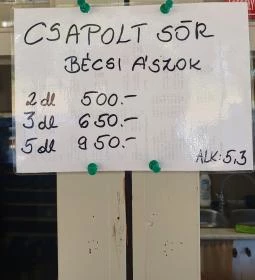 CSAPOLT SŐR
BÉCSI ÁSZOK
2 dl 500.-
3 dl 650.-
5 dl 950.-
ALK: 5,3